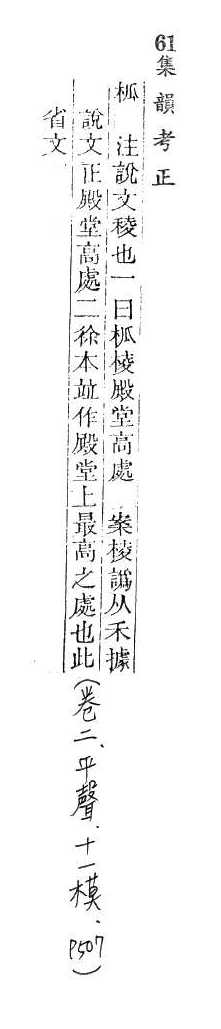 61集韻考正
柧 注說文稜也一曰柧棱殿堂高處 案棱譌从禾據
說文正殿堂高處二徐本竝作殿堂上最高之處也此
省文
(卷二、平聲．十一模、P507)